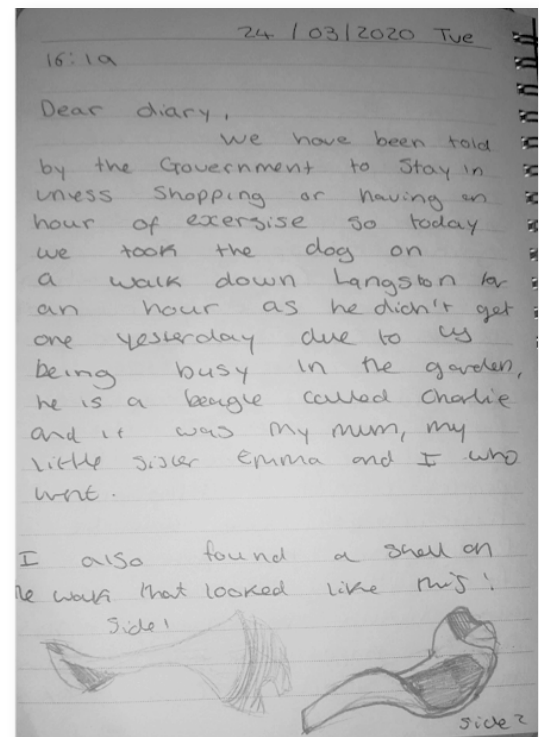 24 / 03 / 2020 Tue
16:19
Dear diary,
We have been told
by the Government to Stay in
unless Shopping or having an
hour of exersise so today
we took the dog on
a walk down Langston for
an hour as he didn't get
one yesterday due to us
being busy in the garden,
he is a beagle called Charlie
and it was my mum, my
little sister Emma and I who
went.
I also found a shell on
he walk that looked like this:
Side 1
Side 2